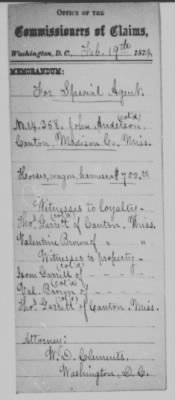 OFFICE OF THE
Commissioners of Claims,
Washington, D. C., Feb. 19th 1874.
MEMORANDUM:
For Special Agent.
No. 14.368. John Anderson (cold)
Canton, Madison Co. Miss.
Horses, wagon, harness $700.00
Witnesses to loyalty—
Thos. Garrett (cold) of Canton, Miss.
Valentine Brown of " "
Witnesses to property—
Isom Garrett (cold) of - - -
Val. Brown (cold) of - - -
Thos. Garrett of Canton, Miss.
Attorney:
W. D. Clements.
Washington, D.C.